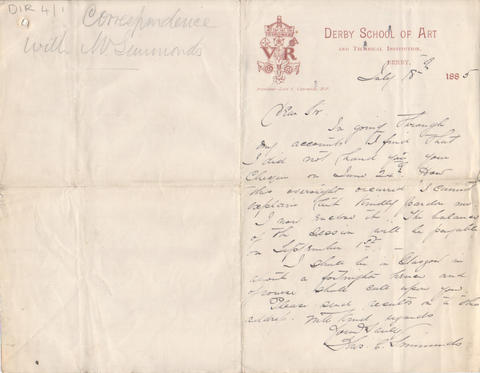 DIR 4/1
Correspondence
with Mr Simmonds
DERBY SCHOOL OF ART
AND TECHNICAL INSTITUTION,
DERBY,
VR
July 18th 1885
Dear Sir
In going through
my accounts I find that
I did not hand you your
Cheque on June 24th. How
this oversight occurred I cannot
explain but kindly pardon me
I now enclose it. The balance
of the session will be payable
on September 1st. —
I shall be in Glasgow in
about a fortnights hence and
of course shall call upon you.
Please send results on to this
address. With kind regards
Yours faithfully
Thos. C. Simmonds